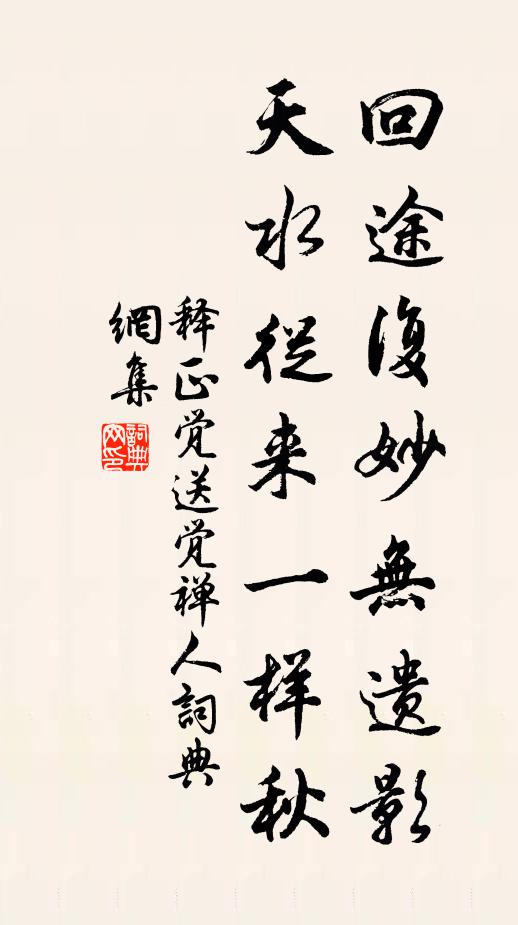 回途復妙無遗影
天水從来一样秋
释正觉送觉禅人詞典
網集
詞典
网印